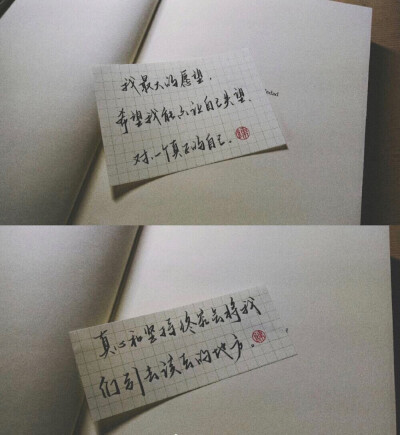 我最大的愿望，
希望我能让自己失望，
一个真正的自己。
真心和坚持终究会将我
们引去该去的地方。